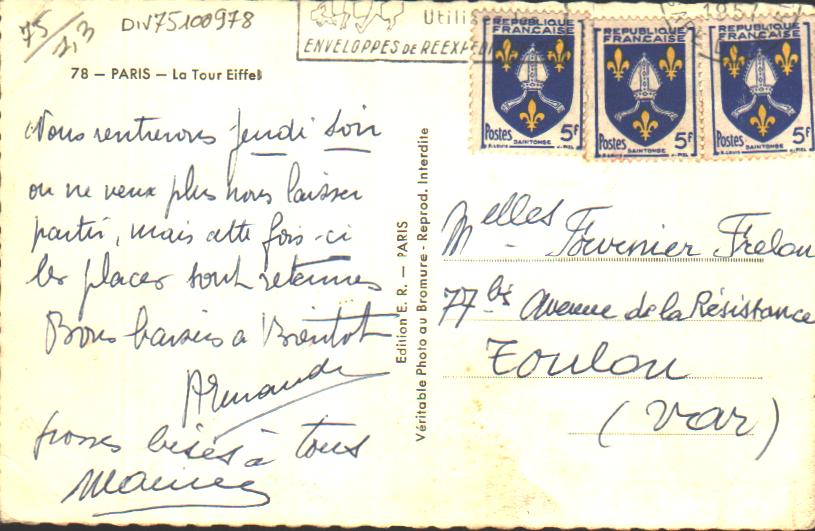 75
1,3
DIV75100978
Utilis
ENVELOPPES DE REEXPEDI
1957
78 — PARIS — La Tour Eiffel
Nous rentrerons jeudi soir
on ne veux plus nous laisser
partir, mais cette fois-ci
les places sont retenues
Bons baisers a Bientôt
Armande
grosses bises à tous
Edition E. R. — PARIS
Véritable Photo au Bromure - Reprod. Interdite
REPUBLIQUE
FRANÇAISE
Postes 5F
SAINTONGE
R. LOUIS
J. PIEL
REPUBLIQUE
FRANÇAISE
Postes 5F
SAINTONGE
R. LOUIS
J. PIEL
REPUBLIQUE
FRANÇAISE
Postes 5F
SAINTONGE
R. LOUIS
J. PIEL
Melles Fournier Frelon
77 bis Avenue de la Résistance
Toulon
(Var)